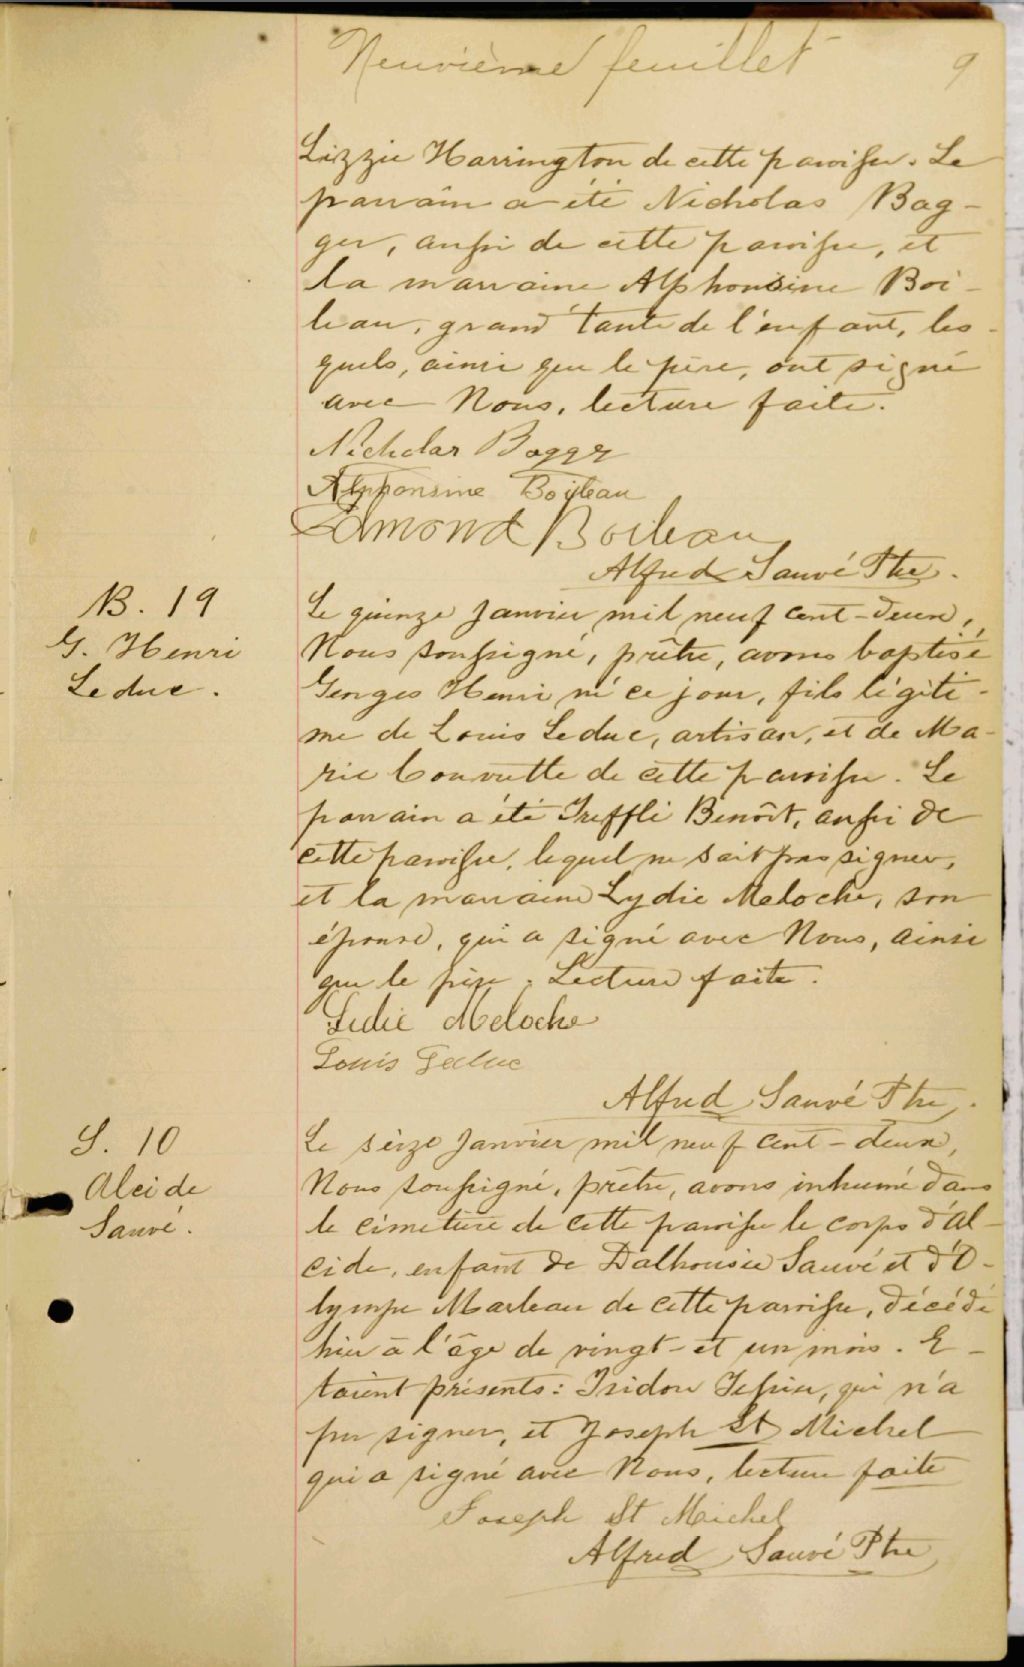 Neuvième feuillet 9
Lizzie Harrington de cette paroisse. Le
parrain a été Nicholas Bag-
ger, aussi de cette paroisse, et
la marraine Alphonsine Boi-
leau, grand'tante de l'enfant, les-
quels, ainsi que le père, ont signé
avec Nous, lecture faite.
Nicholas Bagger
Alphonsine Boileau
Edmond Boileau
Alfred Sauvé Ptre.
B. 19
G. Henri
Leduc.
Le quinze janvier mil neuf cent-deux,
Nous soussigné, prêtre, avons baptisé
Georges Henri né ce jour, fils légiti-
me de Louis Leduc, artisan, et de Ma-
rie Couvrette de cette paroisse. Le
parrain a été Trefflé Benoît, aussi de
cette paroisse, lequel ne sait pas signer,
et la marraine Lydie Meloche, son
épouse, qui a signé avec Nous, ainsi
que le père. Lecture faite.
Lidie Meloche
Louis Leduc
Alfred Sauvé Ptre.
S. 10
Alcide
Sauvé.
Le seize janvier mil neuf cent-deux,
Nous soussigné, prêtre, avons inhumé dans
le cimetière de cette paroisse le corps d'Al-
cide, enfant de Dalhousie Sauvé et d'O-
lympe Marleau de cette paroisse, décédé
hier à l'âge de vingt-et un mois. E-
taient présents: Isidore Tessier, qui n'a
pu signer, et Joseph St Michel
qui a signé avec Nous, lecture faite
Joseph St Maichel
Alfred Sauvé Ptre